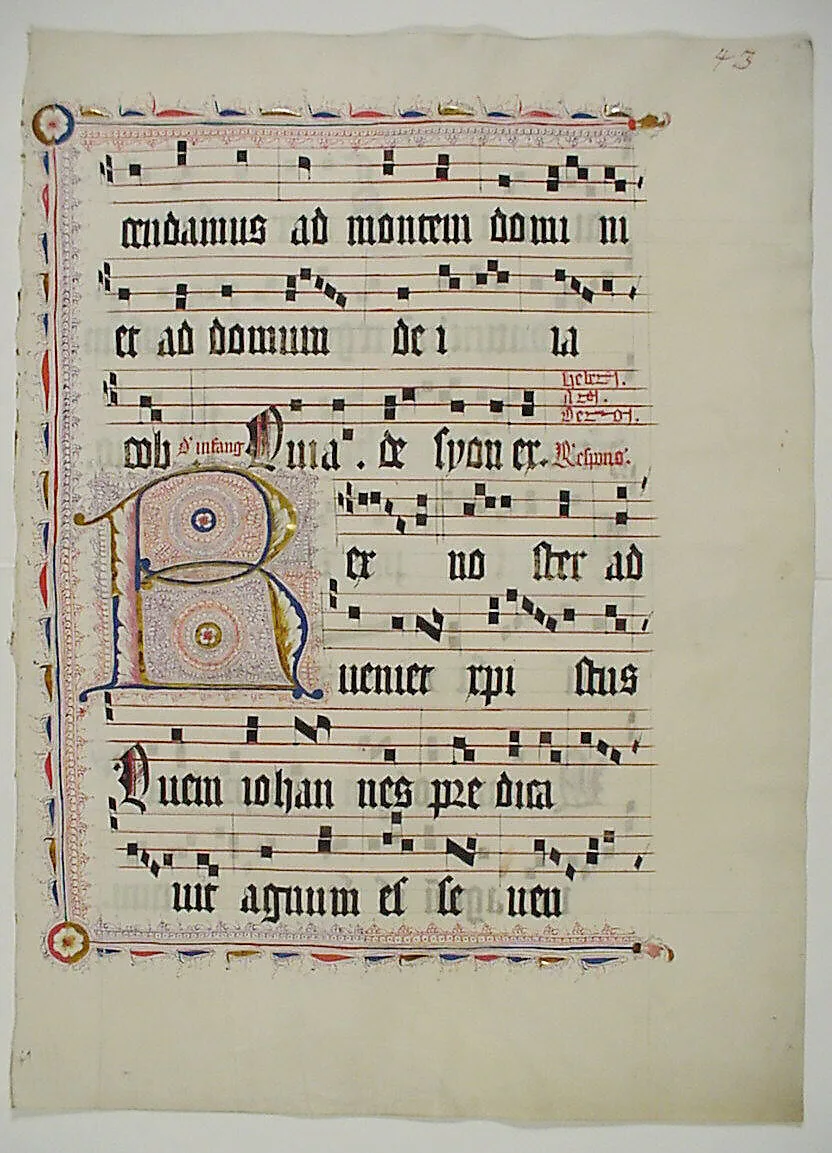 43
cendamus ad montem domi ni
et ad domum de i ia
cob Quia . de syon ex.
Respons.
R ex no ster ad
ueniet xpi stus
Quem iohan nes pre dica
uit agnum es se uen